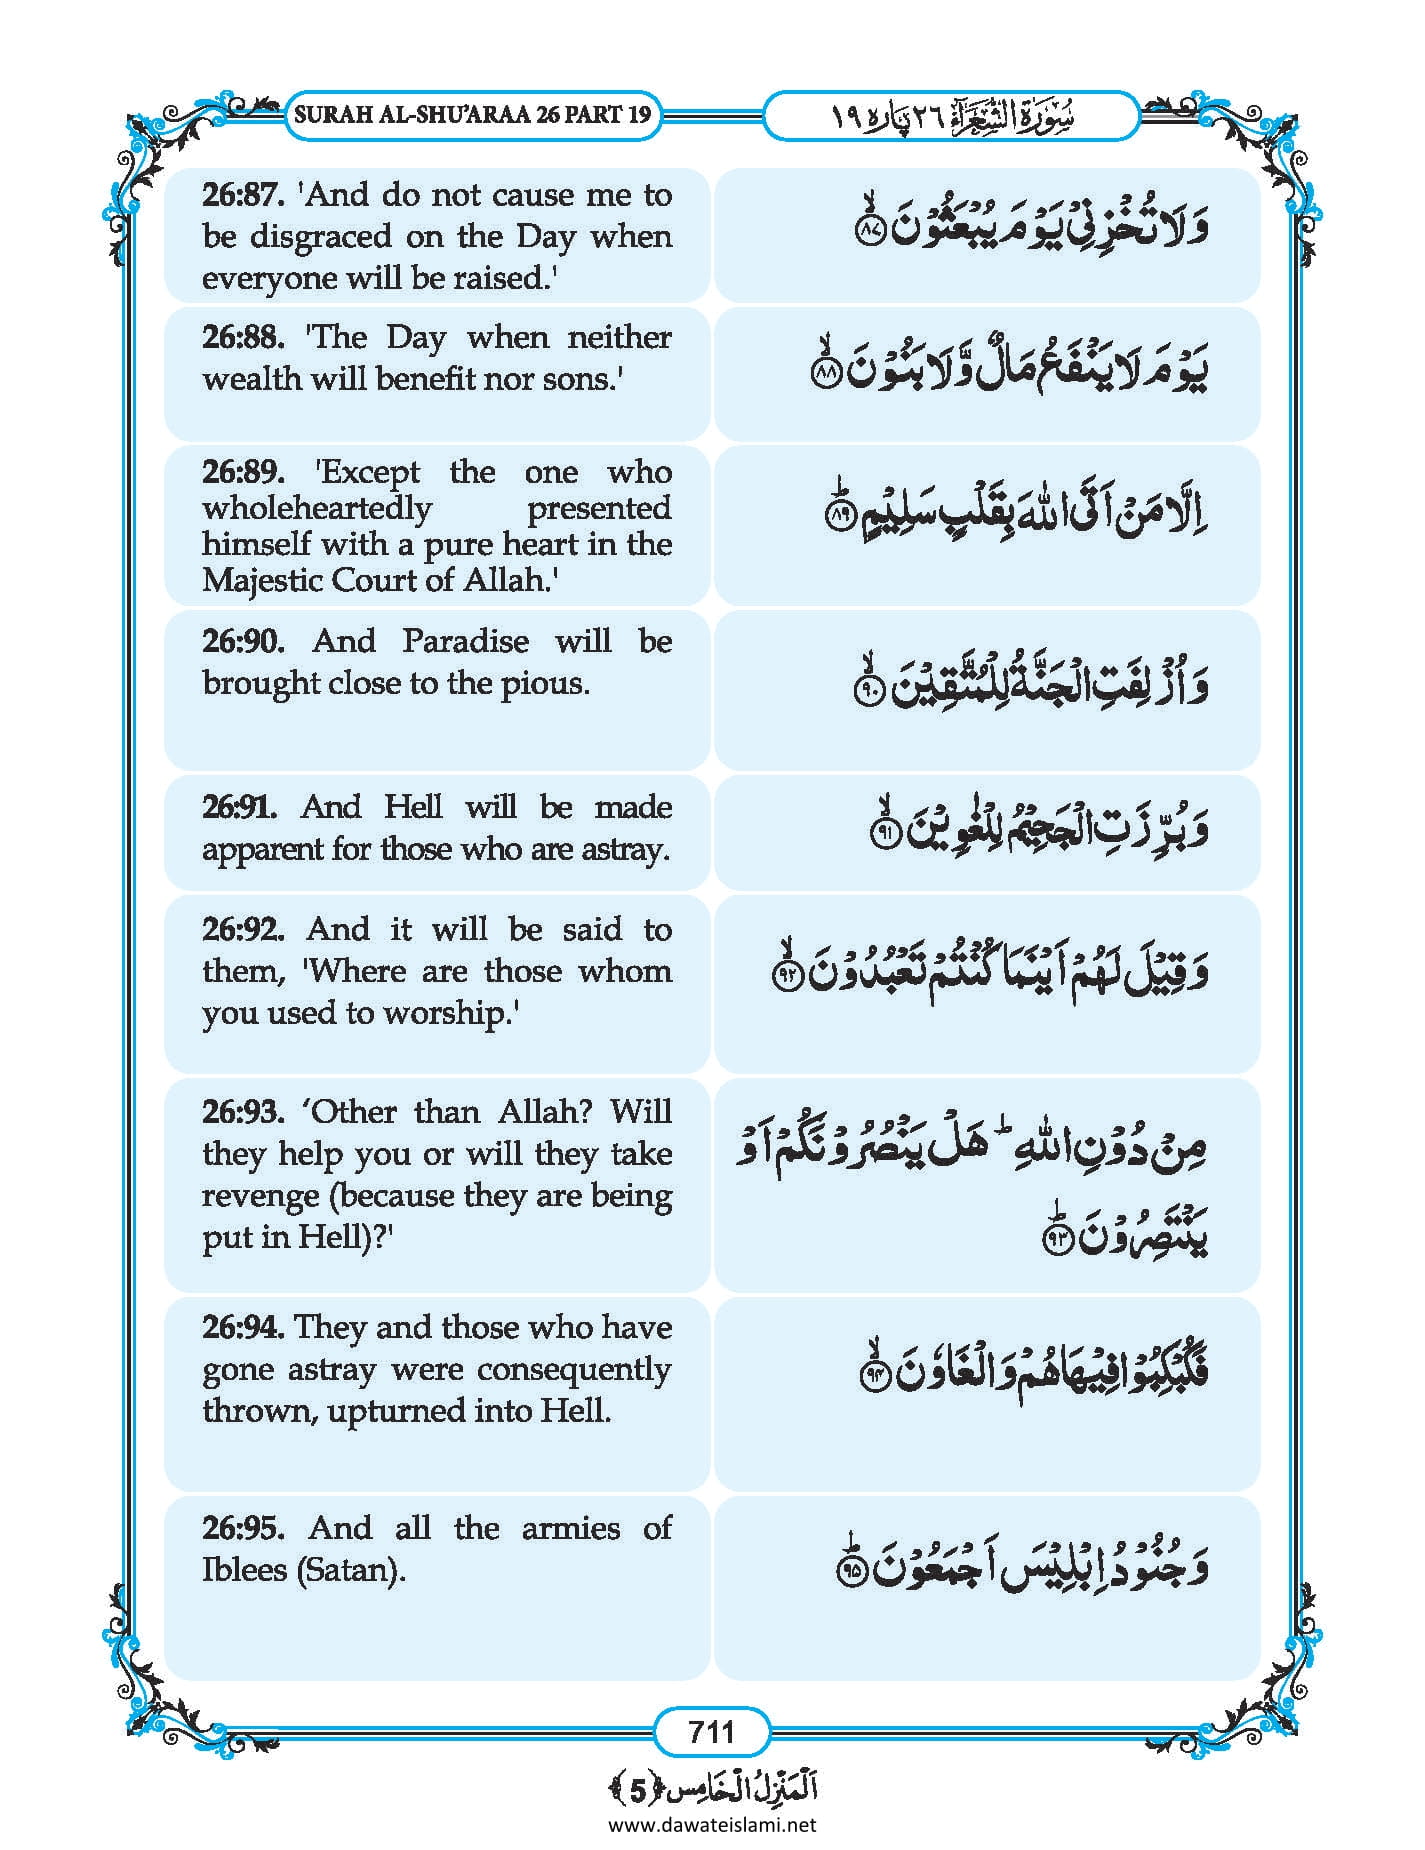 SURAH AL-SHU’ARAA 26 PART 19
سُوْرَةُ الشُّعَرَآءِ ٢٦ پَارَه ١٩
26:87. 'And do not cause me to
be disgraced on the Day when
everyone will be raised.'
وَلَا تُخْزِنِيْ يَوْمَ يُبْعَثُوْنَ ۙ﴿۸۷﴾
26:88. 'The Day when neither
wealth will benefit nor sons.'
يَوْمَ لَا يَنْفَعُ مَالٌ وَّلَا بَنُوْنَ ۙ﴿۸۸﴾
26:89. 'Except the one who
wholeheartedly presented
himself with a pure heart in the
Majestic Court of Allah.'
اِلَّا مَنْ اَتَى اللّٰهَ بِقَلْبٍ سَلِيْمٍ ؕ﴿۸۹﴾
26:90. And Paradise will be
brought close to the pious.
وَ اُزْلِفَتِ الْجَنَّةُ لِلْمُتَّقِيْنَ ۙ﴿۹۰﴾
26:91. And Hell will be made
apparent for those who are astray.
وَ بُرِّزَتِ الْجَحِيْمُ لِلْغٰوِيْنَ ۙ﴿۹۱﴾
26:92. And it will be said to
them, 'Where are those whom
you used to worship.'
وَ قِيْلَ لَهُمْ اَيْنَمَا كُنْتُمْ تَعْبُدُوْنَ ۙ﴿۹۲﴾
26:93. ‘Other than Allah? Will
they help you or will they take
revenge (because they are being
put in Hell)?'
مِنْ دُوْنِ اللّٰهِ ؕ هَلْ يَنْصُرُوْنَكُمْ اَوْ
يَنْتَصِرُوْنَ ؕ﴿۹۳﴾
26:94. They and those who have
gone astray were consequently
thrown, upturned into Hell.
فَكُبْكِبُوْا فِيْهَا هُمْ وَ الْغَاوٗنَ ۙ﴿۹۴﴾
26:95. And all the armies of
Iblees (Satan).
وَ جُنُوْدُ اِبْلِيْسَ اَجْمَعُوْنَ ؕ﴿۹۵﴾
711
اَلْمَنْزِلُ الْخَامِس ﴿5﴾
www.dawateislami.net